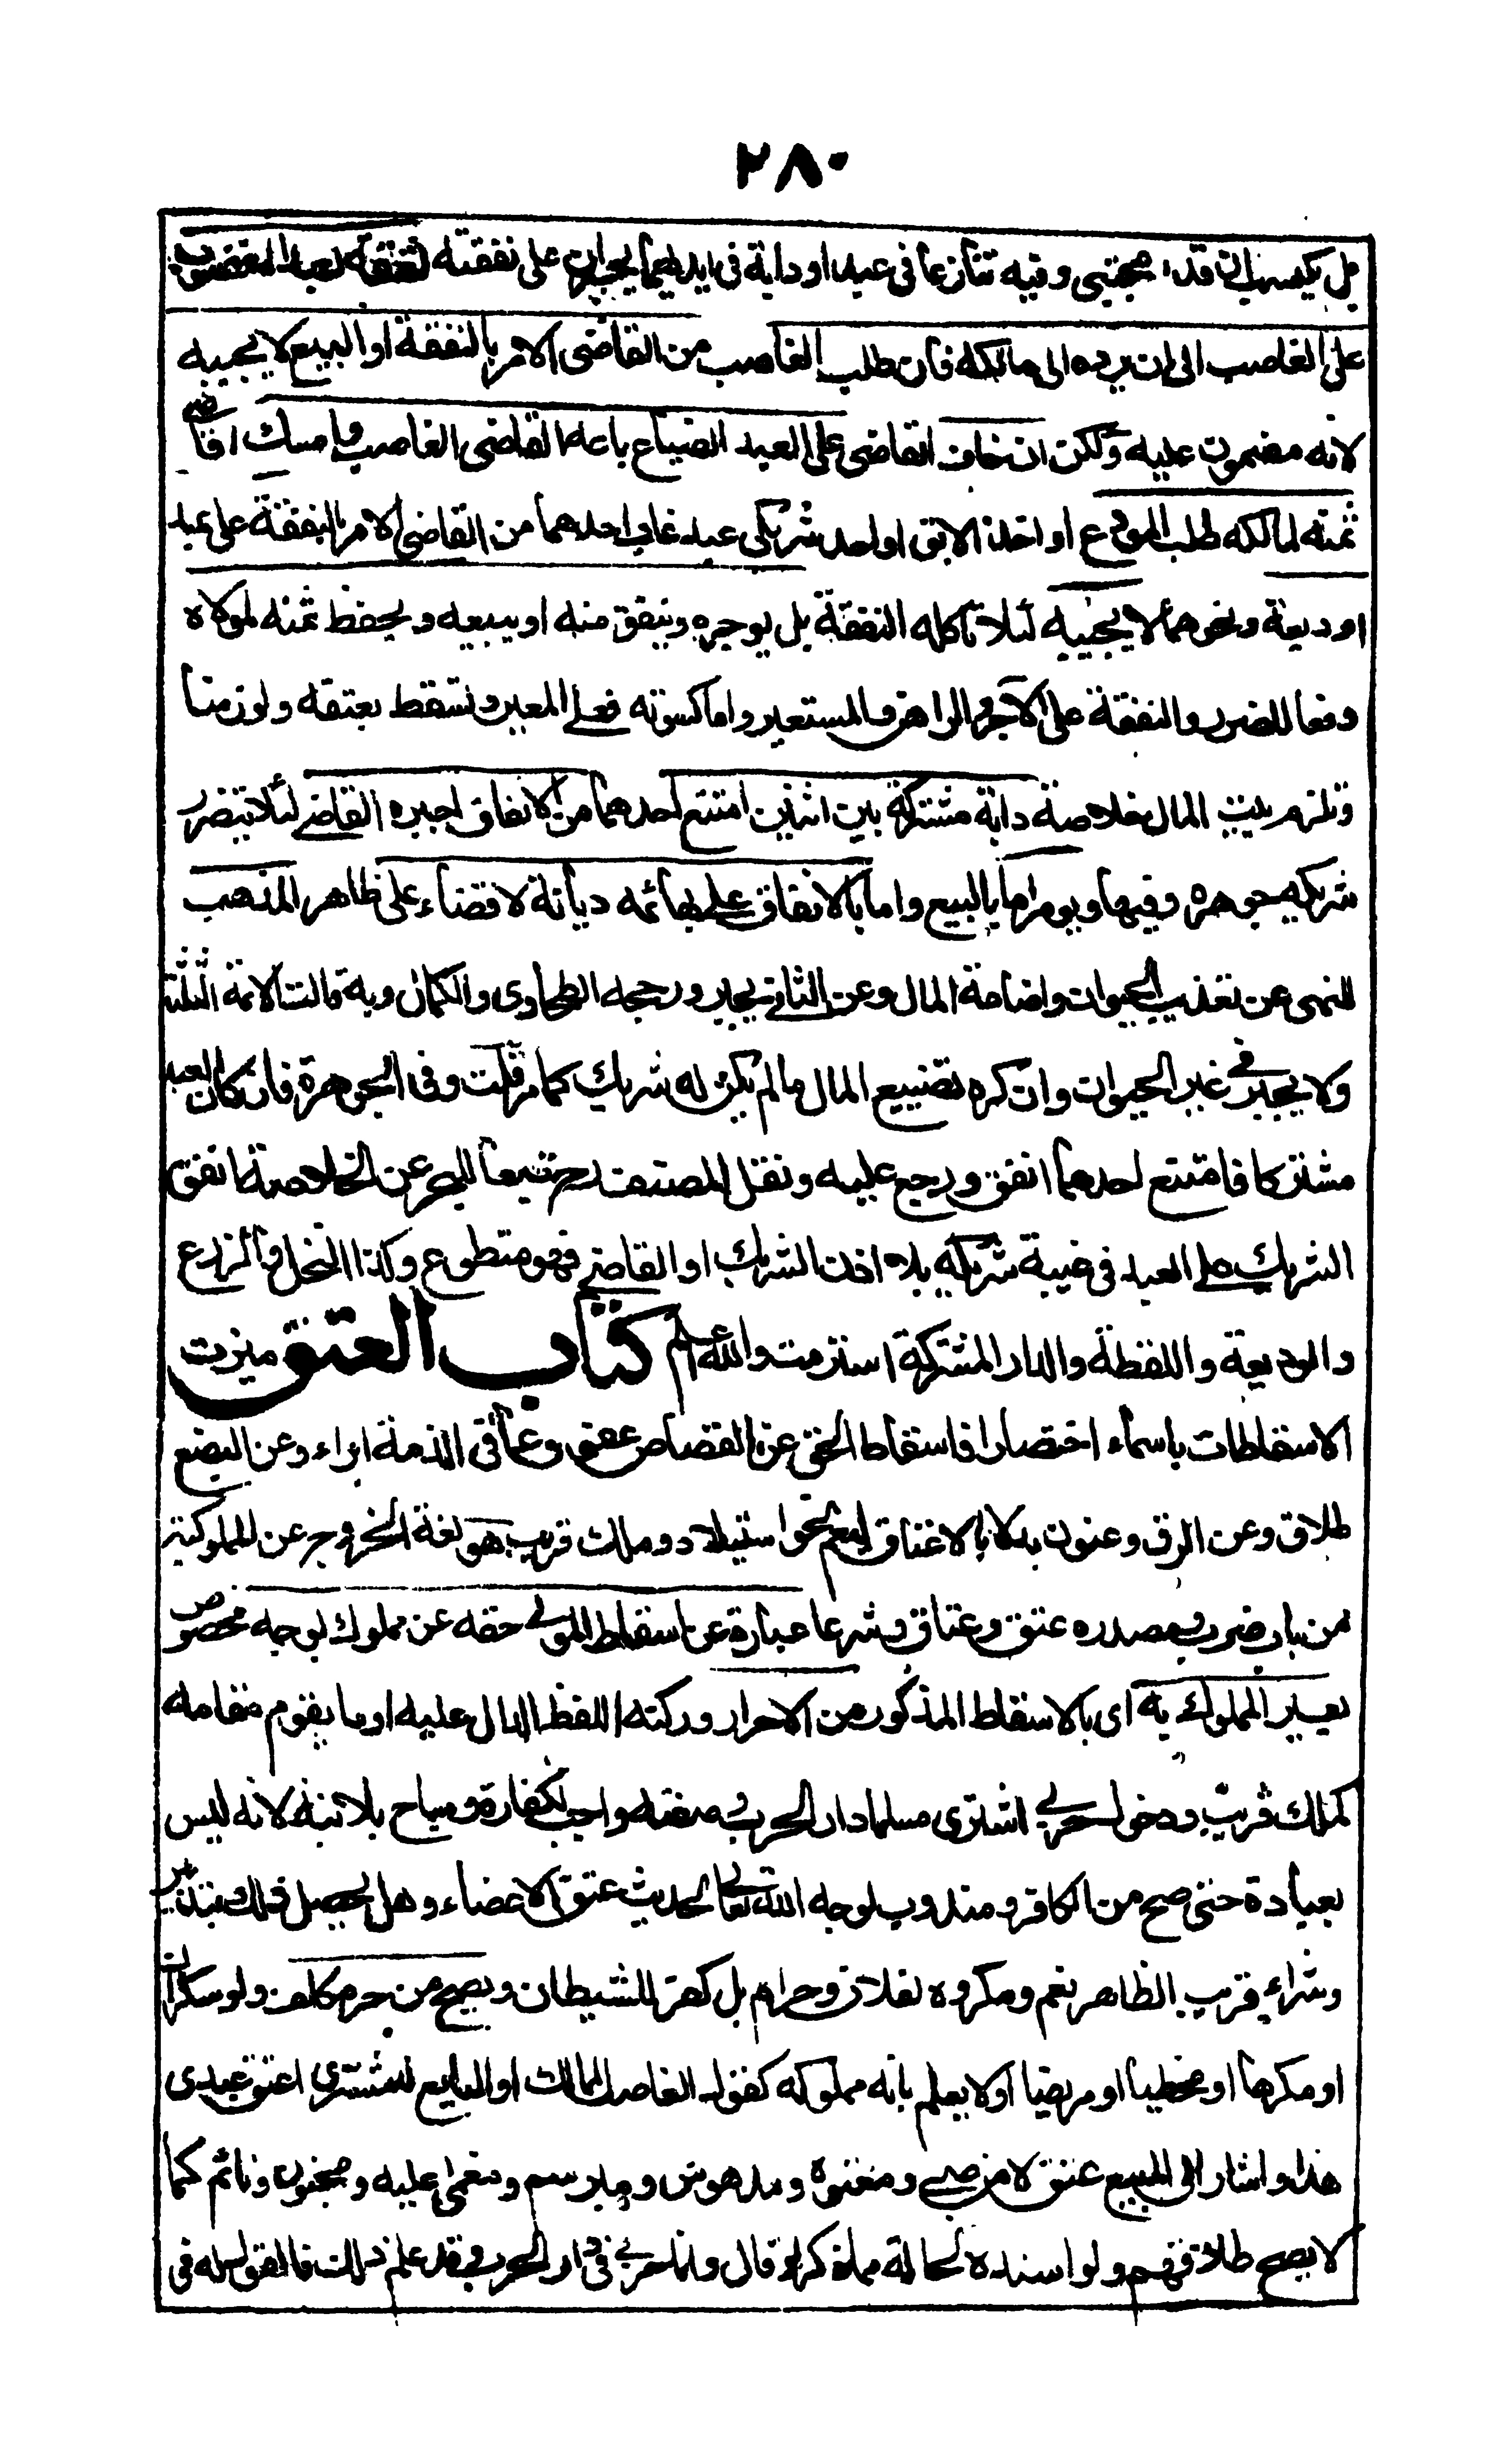 ٢٨٠
بل يكسب ان قدر مجتبى وفيه تنازعا في عبد او دابة في ايديهما يجبران على نفقته نفقة العبد المغصوب
على الغاصب الى ان يرده الى مالكه فان طلب الغاصب من القاضي الامر بالنفقة او البيع لا يجيبه
لانه مضمون عليه ولكن ان خاف القاضي على العبد الضياع باعه القاضي لا الغاصب وامسك القاضي
ثمنه لمالكه طلب المودع او اخذ الآبق او احد شريكي عبد غاب احدهما من القاضي الامر بالنفقة على عبد
او ديعة ونحوهما لا يجيبه لئلا تأكله النفقة بل يوجره وينفق منه او يبيعه ويحفظ ثمنه لمولاه
دفعا للضرر والنفقة على الآجر والراهن والمستعير واما كسوته فعلى المعير وتسقط بعتقه ولو زمنا
وتلزم بيت المال خلاصة دابة مشتركة بين اثنين امتنع احدهما من الانفاق اجبره القاضي لئلا يتضرر
شريكه جوهرة وفيها ويومر اما بالبيع واما بالانفاق على بهائمه ديانة لا قضاء على ظاهر المذهب
للنهى عن تعذيب الحيوان واضاعة المال وعن الثاني يجبر ورجحه الطحاوى والكمال وبه قالت الائمة الثلثة
ولا يجبر في غير الحيوان وان كره تضييع المال ما لم يكن له شريك كما مر قلت وفى الجوهرة فان كان العبد
مشتركا فامتنع احدهما انفق ورجع عليه ونقل المصنف تبعا للبحر عن الخلاصة انفق
الشريك على العبد في غيبة شريكه بلا اذن الشريك او القاضي فهو متطوع وكذا النخل والزرع
والوديعة واللقطة والدار المشتركة استرمت والله اعلم كتاب العتق ميزت
الاسقاطات باسماء اختصارا فاسقاط الحق عن القصاص عفو وعما في الذمة ابراء وعن البضع
طلاق وعن الرق وعنون به لا بالاعتاق ليعم نحو استيلاد وملك قريب هو لغة الخروج عن المملوكية
من باب ضرب ومصدره عتق وعتاق وشرعا عبارة عن اسقاط المولى حقه عن مملوك بوجه مخصوص
يصير المملوك به اى بالاسقاط المذكور من الاحرار وركنه اللفظ الدال عليه او ما يقوم مقامه
كملك قريب ودخول حربي اشترى مسلما دار الحرب وصفته واجب لكفارة ومباح بلا نية لانه ليس
بعبادة حتى صح من الكافر ومندوب لوجه الله تعالى لحديث عتق الاعضاء وهل يحصل ذلك بتدبير
وشراء قريب الظاهر نعم ومكروه لفلان وحرام بل كفر للشيطان ويصح من حر مكلف ولو سكران
او مكرها او مخطيا او مريضا او لا يعلم بانه مملوكه كقول الغاصب للمالك او البايع للمشترى اعتق عبدى
هذا واشار الى المبيع عتق لا من صبي ومعتوه ومدهوش ومبرسم ومغمى عليه ومجنون ونائم كما
لا يصح طلاقهم ولو اسنده لحالة مما ذكر او قال وانا حربي في دار الحرب وقد علم ذلك فالقول له في